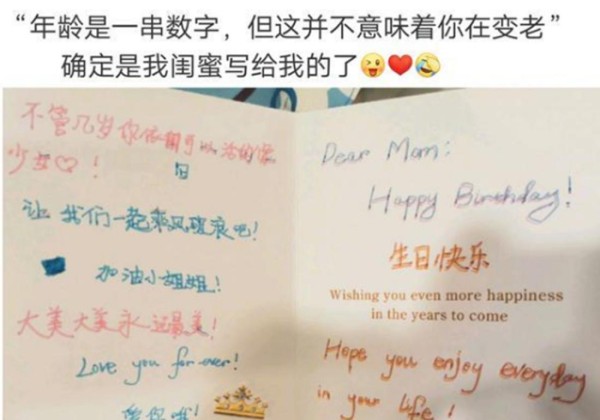 “年龄是一串数字，但这并不意味着你在变老”
确定是我闺蜜写给我的了😜❤️🤣
不管几岁你依旧可以活的像
少女♡！
旧
让我们一起乘风破浪吧！
加油小姐姐！
大美大美永远最美！
Love you for ever!
爱你哦！
Dear Mom:
Happy Birthday!
生日快乐
Wishing you even more happiness
in the years to come
Hope you enjoy everyday
in your life!